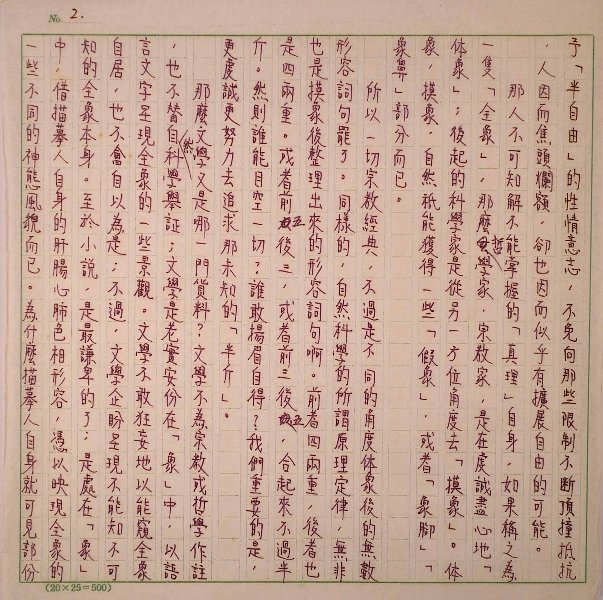 No. 2.
予「半自由」的性情意志，不免向那些限制不断頂撞抵抗
，人因而焦頭爛額，卻也因而似乎有擴展自由的可能。
那人不可知解不能掌握的「真理」自身，如果稱之為
一隻「全象」，那麼哲學家、宗教家，是在虔誠盡心地「
体象」；後起的科學家是從另一方位角度去「摸象」。体
象，摸象，自然祇能獲得一些「假象」，或者「象腳」「
象鼻」部分而已。
所以一切宗教經典，不過是不同的角度体象後的無數
形容詞句罷了。同樣的，自然科學的所謂原理定律，無非
也是摸象後整理出來的形容詞句啊。前者四兩重，後者也
是四兩重。或者前五後三，或者前三後五，合起來不過半
斤。然則誰能目空一切？誰敢揚眉自得？我們重要的是，
更虔誠更努力去追求那未知的「半斤」。
那麼文學又是哪一門貨料？文學不為宗教或哲學作註
，也不替自然科學舉証；文學是老實安份在「象」中，以語
言文字呈現全象的一些景觀。文學不敢狂妄地以能窺全象
自居，也不會自以為是；不過，文學企盼呈現不能知不可
知的全象本身。至於小説，是最謙卑的了；是處在「象」
中，借描摹人自身的肝腸心肺色相形容，憑以映現全象的
一些不同的神態風貌而已。為什麼描摹人自身就可見部份
(20×25=500)